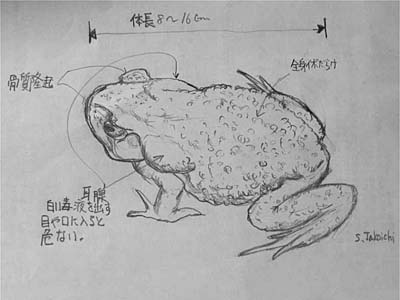 体長8～16cm
骨質隆起
全身イボだらけ
耳腺
白い毒液を出す
目や口に入ると
危ない。
S.Takoichi